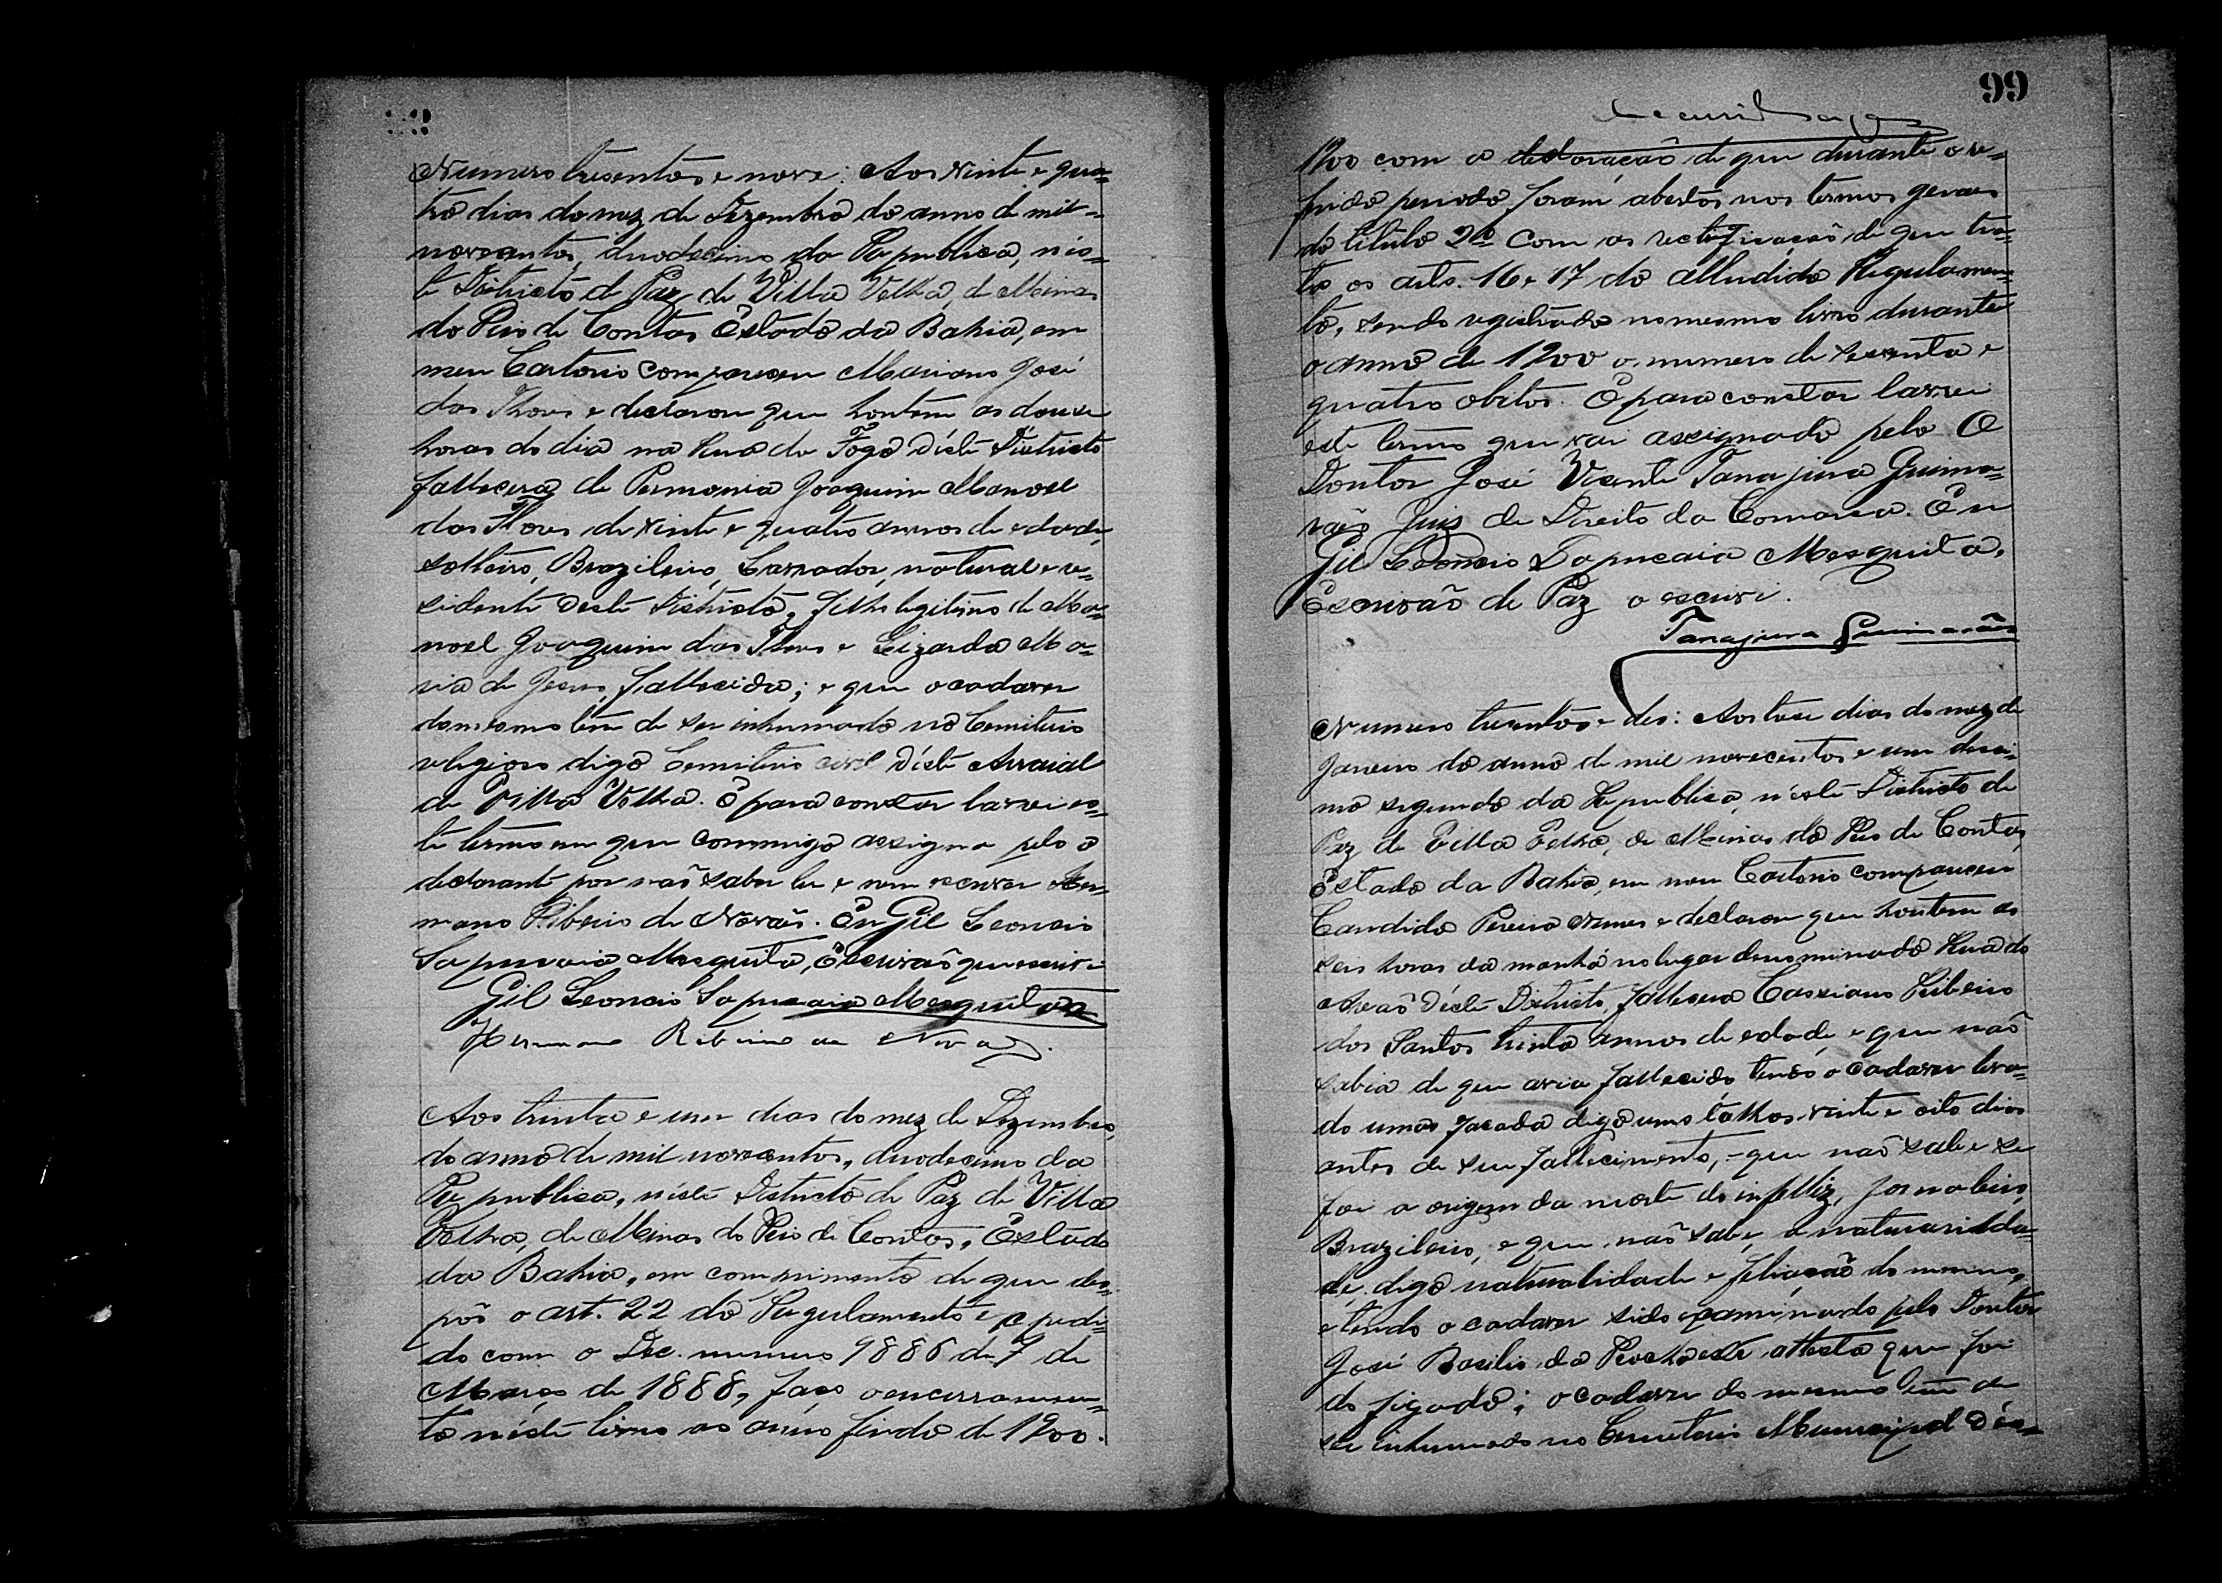 Numero tresentos e nove: Aos vinte e qua-
tro dias do mez de Dezembro do anno de mil-
novecentos, duodecimo da Republica, nes-
te Districto de Paz de Villa Velha, de Minas
do Rio de Contas Estado da Bahia, em
meu Cartorio compareceu Mariano José
das Flores e declarou que hontem as douse
horas do dia na Rua do Fogo d'éste Districto
fallecera de Pneumonia Joaquim Manoel
das Flores de vinte e quatro annos de edade,
solteiro, Brazileiro, Lavrador, natural e re-
sidente deste Districto, filho legitimo de Ma-
noel Joaquim das Flores e Lizarda Ma-
ria de Jesus, fallecida; e que o cadaver
do mesmo tem de ser inhumado no Cemiterio
religioso digo Cemiterio civil d'éste Arraial
de Villa Velha. E para constar lavrei es-
te termo em que commigo assigna pelo o
declarante por não saber ler e nem escrever Her-
mano Ribeiro de Novaes. Eu Gil Leoncio
Sapucaia Mesquita, Escrivão que escrivi
Gil Leoncio Sapucaia Mesquita
Hermano Ribeiro de Novaes.
Aos trinta e um dias do mez de Dezembro,
do anno de mil novecentos, duodecimo da
Republica, n'éste Districto de Paz de Villa
Velha, de Minas do Rio de Contas, Estado
da Bahia, em comprimento de que des-
pôs o art. 22 do Regulamento expedi-
do com o Dec. numero 9886 de 7 de
Março de 1888, faço o encerramen-
to n'éste livro ao anno findo de 1900.
99
1900 com a declaração de que durante o re-
ferido periodo foram abertos nos termos geraes
do titulo 2º com as rectificação de que tra-
ta os arts. 16 e 17 do alludido Regulamen-
to, sendo registrado no mesmo livro durante
o anno de 1900 o numero de sessenta e
quatro obitos. E para constar lavrei
este termo que vai assignado pelo O
Doutor José Vicente Tanajura Guima-
rães Juis de Direito da Comarca. Eu
Gil Leoncio Sapucaia Mesquita,
Escrivão de Paz o escrivi.
Tanajura Guimarães
Numero tresentos e des: Aos tres dias do mez de
Janeiro do anno de mil novecentos e um deci-
mo segundo da Republica, n'éste Districto de
Paz de Villa Velha, de Minas do Rio de Contas,
Estado da Bahia, em meu Cartorio compareceu
Candido Pereira Nunes e declarou que hontem as
seis horas da manhã no lugar denominado Rua do
d'éste Districto, fallecera Cassiano Ribeiro
dos Santos trinta annos de edade, e que não
sabia de que avia fallecido tendo o cadaver leva-
do umas facada digo uns talhos vinte e oito dias
antes de seu fallecimento, que não sabe se
foi a origem da morte do infelliz, jornaleiro,
Brazileiro, e que não sabe a naturarilda-
de, digo naturalidade e filiação do mesmo,
e tendo o cadaver sido examinado pelo Doutor
José Basilio da Rocha este attesta que foi
do figado; o cadaver do mesmo tem de
ser inhumado no Cemiterio Municipal d'és-